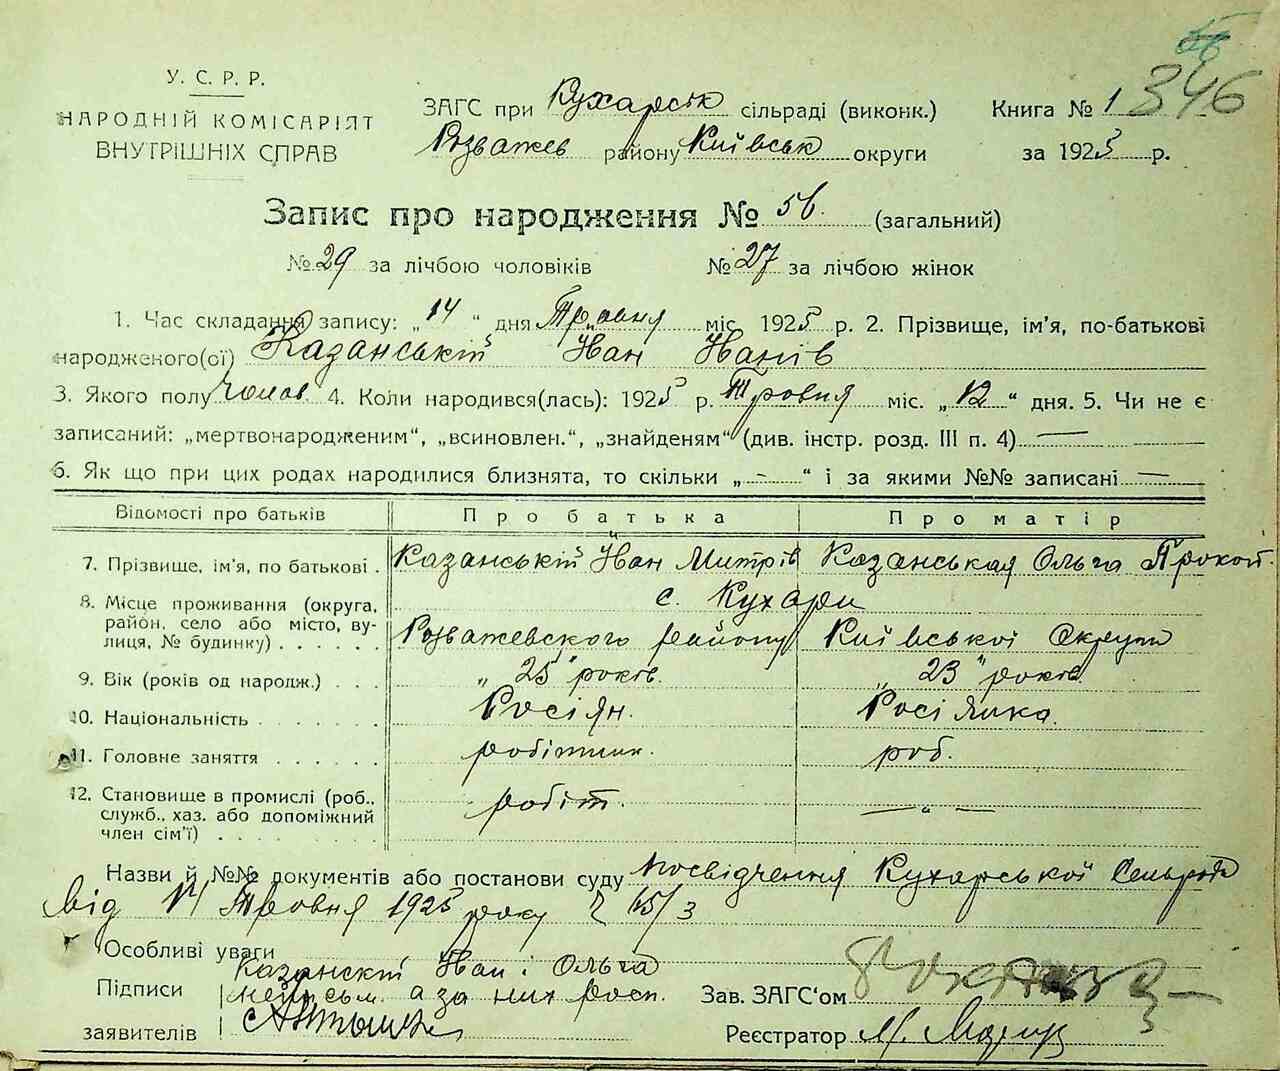 56
346
У. С. Р. Р.
НАРОДНІЙ КОМІСАРІЯТ
ВНУТРІШНІХ СПРАВ
ЗАГС при Кухарськ сільраді (виконк.) Книга № 1
Розважев району Київськ округи за 1925 р.
Запис про народження № 56. (загальний)
№ 29 за лічбою чоловіків № 27 за лічбою жінок
1. Час складання запису: „14“ дня Тровня міс 1925 р. 2. Прізвище, ім’я, по-батькові
народженого(ої) Казанській Іван Іванів
3. Якого полу Чолов. 4. Коли народився(лась): 1925 р. Тровня міс. „12“ дня. 5. Чи не є
записаний: „мертвонародженим“, „всиновлен.“, „знайденям“ (див. інстр. розд. III п. 4) —
6. Як що при цих родах народилися близнята, то скільки „-“ і за якими №№ записані —
Відомості про батьків Про батька Про матір
7. Прізвище, ім’я, по батькові . Казанській Іван Митрів Казанськая Ольга Прокоп.
8. Місце проживання (округа, с. Кухари
район, село або місто, ву- Розважевского району Київської Округи
лиця, № будинку) . . . . . .
9. Вік (років од народж.) . . . „25“ років. „23“ років
10. Національність . . . . . . Росіян. Росіянка.
11. Головне заняття . . . . . . робітник. роб.
12. Становище в промислі (роб., робіт. — „ —
служб., хаз. або допоміжний
член сім’ї) . . . . . . .
Назви й №№ документів або постанови суду Посвідчення Кухарської Сельради
від Тровня 1925 року
Особливі уваги
Казанскій Іван і Ольга
Підписи а за них росп. Зав. ЗАГС’ом
заявителів Реєстратор М.